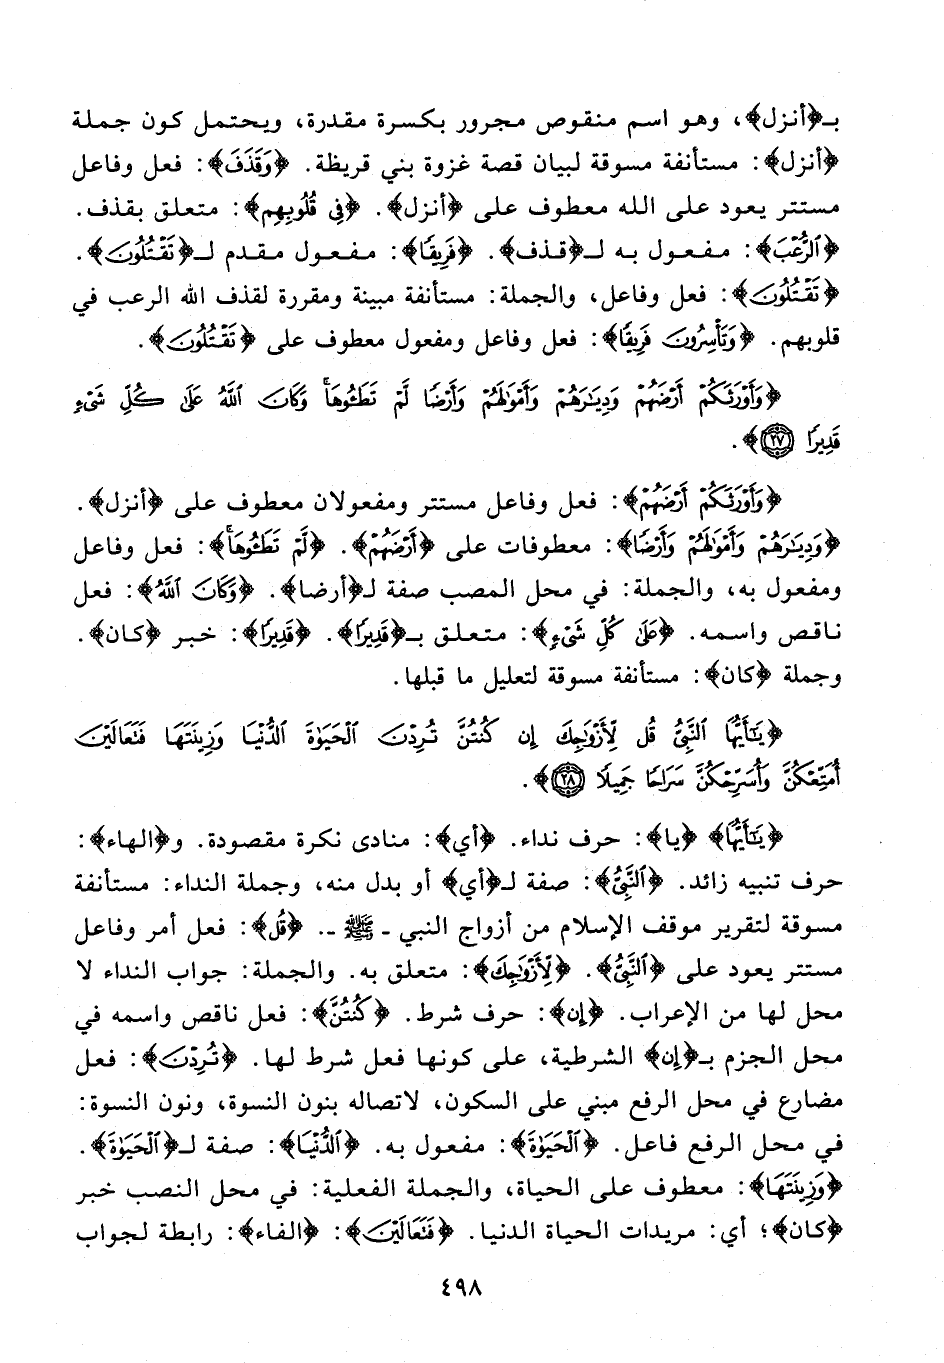 بـ﴿أنزل﴾، وهو اسم منقوص مجرور بكسرة مقدرة، ويحتمل كون جملة
﴿أنزل﴾: مستأنفة مسوقة لبيان قصة غزوة بني قريظة. ﴿وَقَذَفَ﴾: فعل وفاعل
مستتر يعود على الله معطوف على ﴿أنزل﴾. ﴿فِي قُلُوبِهِم﴾: متعلق بقذف.
﴿ٱلرُّعْبَ﴾: مفعول به لـ﴿قذف﴾. ﴿فَرِيقًا﴾: مفعول مقدم لـ﴿تَقْتُلُونَ﴾.
﴿تَقْتُلُونَ﴾: فعل وفاعل، والجملة: مستأنفة مبينة ومقررة لقذف الله الرعب في
قلوبهم. ﴿وَتَأْسِرُونَ فَرِيقًا﴾: فعل وفاعل ومفعول معطوف على ﴿تَقْتُلُونَ﴾.
﴿وَأَوْرَثَكُمْ أَرْضَهُمْ وَدِيَـٰرَهُمْ وَأَمْوَٰلَهُمْ وَأَرْضًا لَّمْ تَطَـُٔوهَا ۚ وَكَانَ ٱللَّهُ عَلَىٰ كُلِّ شَىْءٍ
قَدِيرًا ٢٧﴾.
﴿وَأَوْرَثَكُمْ أَرْضَهُمْ﴾: فعل وفاعل مستتر ومفعولان معطوف على ﴿أنزل﴾.
﴿وَدِيَـٰرَهُمْ وَأَمْوَٰلَهُمْ وَأَرْضًا﴾: معطوفات على ﴿أَرْضَهُمْ﴾. ﴿لَّمْ تَطَـُٔوهَا ۚ﴾: فعل وفاعل
ومفعول به، والجملة: في محل المصب صفة لـ﴿أرضا﴾. ﴿وَكَانَ ٱللَّهُ﴾: فعل
ناقص واسمه. ﴿عَلَىٰ كُلِّ شَىْءٍ﴾: متعلق بـ﴿قَدِيرًا﴾. ﴿قَدِيرًا﴾: خبر ﴿كان﴾.
وجملة ﴿كان﴾: مستأنفة مسوقة لتعليل ما قبلها.
﴿يَـٰٓأَيُّهَا ٱلنَّبِىُّ قُل لِّأَزْوَٰجِكَ إِن كُنتُنَّ تُرِدْنَ ٱلْحَيَوٰةَ ٱلدُّنْيَا وَزِينَتَهَا فَتَعَالَيْنَ
أُمَتِّعْكُنَّ وَأُسَرِّحْكُنَّ سَرَاحًا جَمِيلًا ٢٨﴾.
﴿يَـٰٓأَيُّهَا﴾ ﴿يا﴾: حرف نداء. ﴿أي﴾: منادى نكرة مقصودة. و﴿الهاء﴾:
حرف تنبيه زائد. ﴿ٱلنَّبِىُّ﴾: صفة لـ﴿أي﴾ أو بدل منه، وجملة النداء: مستأنفة
مسوقة لتقرير موقف الإسلام من أزواج النبي - ﷺ -.. ﴿قُل﴾: فعل أمر وفاعل
مستتر يعود على ﴿ٱلنَّبِىُّ﴾. ﴿لِّأَزْوَٰجِكَ﴾: متعلق به. والجملة: جواب النداء لا
محل لها من الإعراب. ﴿إِن﴾: حرف شرط. ﴿كُنتُنَّ﴾: فعل ناقص واسمه في
محل الجزم بـ﴿إن﴾ الشرطية، على كونها فعل شرط لها. ﴿تُرِدْنَ﴾: فعل
مضارع في محل الرفع مبني على السكون، لاتصاله بنون النسوة، ونون النسوة:
في محل الرفع فاعل. ﴿ٱلْحَيَوٰةَ﴾: مفعول به. ﴿ٱلدُّنْيَا﴾: صفة لـ﴿ٱلْحَيَوٰةَ﴾.
﴿وَزِينَتَهَا﴾: معطوف على الحياة، والجملة الفعلية: في محل النصب خبر
﴿كان﴾؛ أي: مريدات الحياة الدنيا. ﴿فَتَعَالَيْنَ﴾: ﴿الفاء﴾: رابطة لجواب
٤٩٨